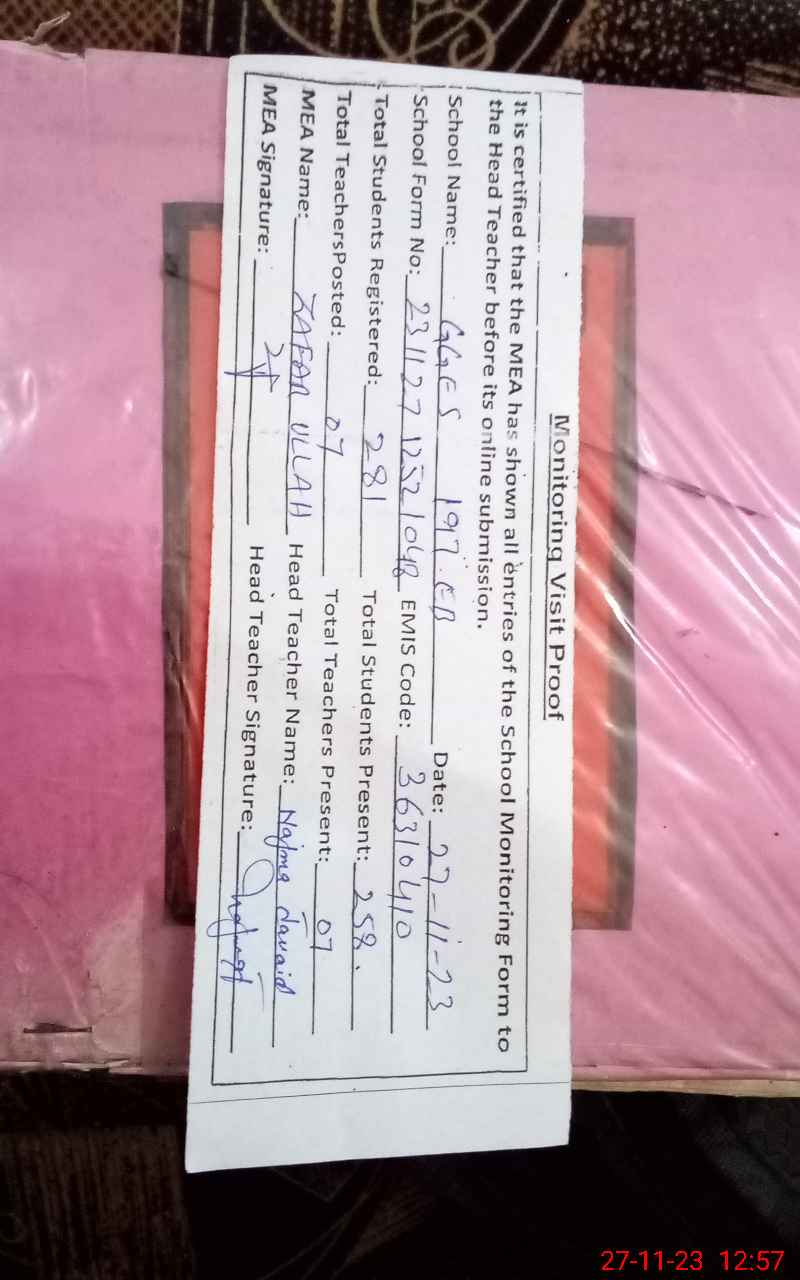 Monitoring Visit Proof
It is certified that the MEA has shown all entries of the School Monitoring Form to
the Head Teacher before its online submission.
School Name: GGES 197.EB Date: 27-11-23
School Form No: 231127 12521048 EMIS Code: 36310410
Total Students Registered: 281 Total Students Present: 258.
Total TeachersPosted: 07 Total Teachers Present: 07
MEA Name: ZAFAR ULLAH Head Teacher Name: Najma Javaid
MEA Signature: Head Teacher Signature:
27-11-23 12:57